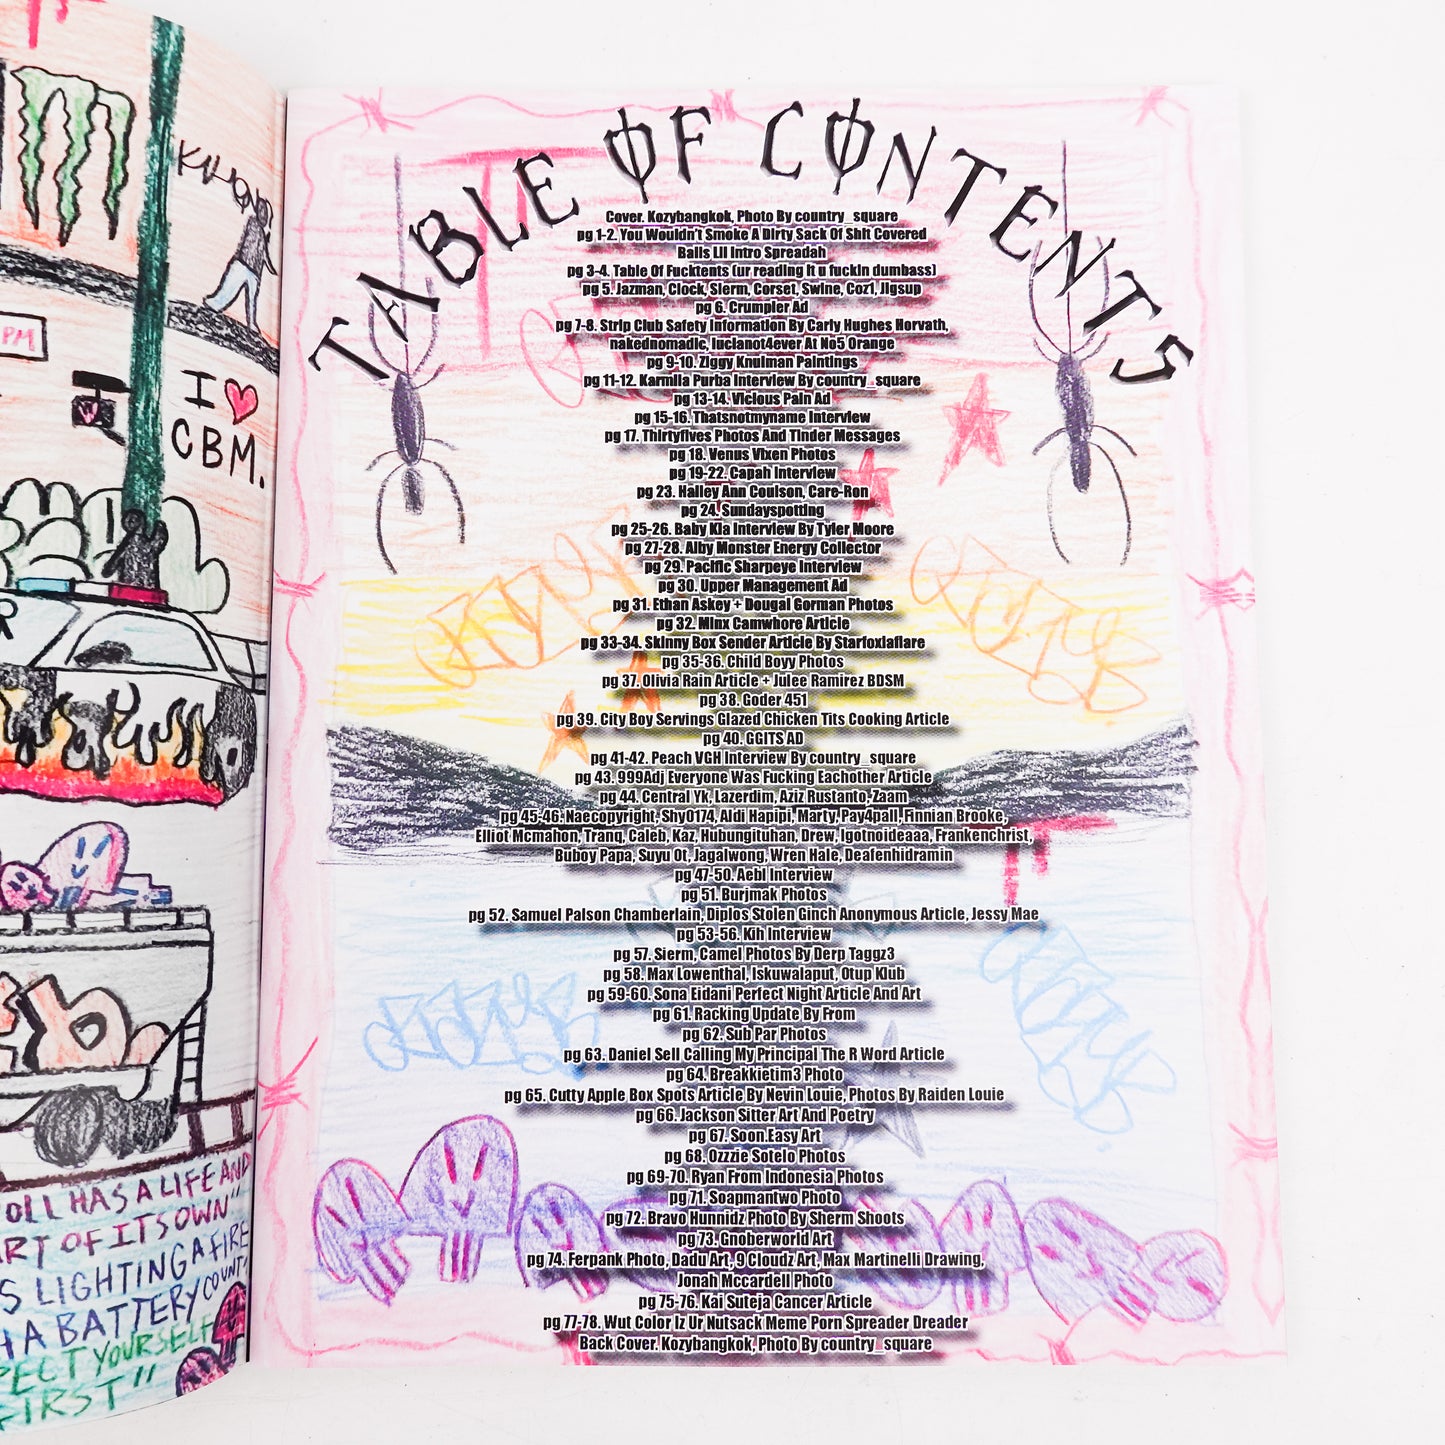 KAHON
PM
I ♥
CBM.
R
OLL HAS A LIFE AND
ART OF ITS OWN"
S LIGHTING A FIRE
H A BATTERY COUNT?
PECT YOURSELF
FIRST"
TABLE OF CONTENTS
Cover. Kozybangkok, Photo By country_square
pg 1-2. You Wouldn't Smoke A Dirty Sack Of Shit Covered
Balls Lil Intro Spreadah
pg 3-4. Table Of Fucktents (ur reading it u fuckin dumbass)
pg 5. Jazman, Clock, Sierm, Corset, Swine, Cozi, Jigsup
pg 6. Crumpler Ad
pg 7-8. Strip Club Safety Information By Carly Hughes Horvath,
nakednomadic, lucianot4ever At No5 Orange
pg 9-10. Ziggy Knulman Paintings
pg 11-12. Karmila Purba Interview By country_square
pg 13-14. Vicious Pain Ad
pg 15-16. Thatsnotmyname Interview
pg 17. Thirtyfives Photos And Tinder Messages
pg 18. Venus Vixen Photos
pg 19-22. Capah Interview
pg 23. Hailey Ann Coulson, Care-Ron
pg 24. Sundayspotting
pg 25-26. Baby Kia Interview By Tyler Moore
pg 27-28. Alby Monster Energy Collector
pg 29. Pacific Sharpeye Interview
pg 30. Upper Management Ad
pg 31. Ethan Askey + Dougal Gorman Photos
pg 32. Minx Camwhore Article
pg 33-34. Skinny Box Sender Article By Starfoxlaflare
pg 35-36. Child Boyy Photos
pg 37. Olivia Rain Article + Julee Ramirez BDSM
pg 38. Goder 451
pg 39. City Boy Servings Glazed Chicken Tits Cooking Article
pg 40. GGITS AD
pg 41-42. Peach VGH Interview By country_square
pg 43. 999Adj Everyone Was Fucking Eachother Article
pg 44. Central Yk, Lazerdim, Aziz Rustanto, Zaam
pg 45-46. Naecopyright, Shy0174, Aldi Hapipi, Marty, Pay4pall, Finnian Brooke,
Elliot Mcmahon, Tranq, Caleb, Kaz, Hubungituhan, Drew, Igotnoideaaa, Frankenchrist,
Buboy Papa, Suyu Ot, Jagalwong, Wren Hale, Deafenhidramin
pg 47-50. Aebi Interview
pg 51. Burjmak Photos
pg 52. Samuel Palson Chamberlain, Diplos Stolen Cinch Anonymous Article, Jessy Mae
pg 53-56. Kih Interview
pg 57. Sierm, Camel Photos By Derp Taggz3
pg 58. Max Lowenthal, Iskuwalaput, Otup Klub
pg 59-60. Sona Eidani Perfect Night Article And Art
pg 61. Racking Update By From
pg 62. Sub Par Photos
pg 63. Daniel Sell Calling My Principal The R Word Article
pg 64. Breakkietim3 Photo
pg 65. Cutty Apple Box Spots Article By Nevin Louie, Photos By Raiden Louie
pg 66. Jackson Sitter Art And Poetry
pg 67. Soon.Easy Art
pg 68. Ozzzie Sotelo Photos
pg 69-70. Ryan From Indonesia Photos
pg 71. Soapmantwo Photo
pg 72. Bravo Hunnidz Photo By Sherm Shoots
pg 73. Gnoberworld Art
pg 74. Ferpank Photo, Dadu Art, 9 Cloudz Art, Max Martinelli Drawing,
Jonah Mccardell Photo
pg 75-76. Kai Suteja Cancer Article
pg 77-78. Wut Color Iz Ur Nutsack Meme Porn Spreader Dreader
Back Cover. Kozybangkok, Photo By country_square